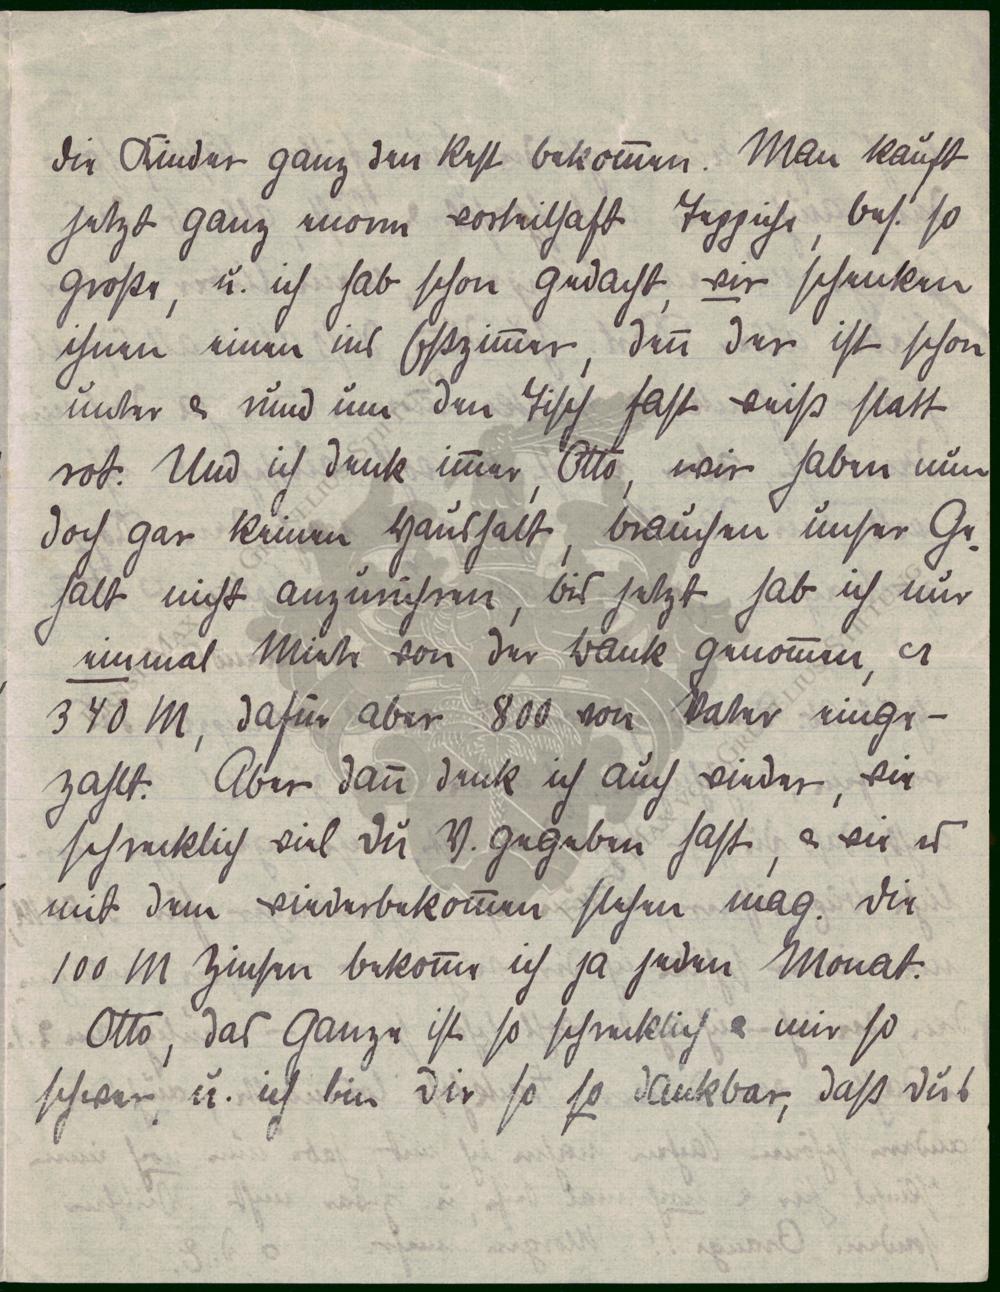 die Kinder ganz den Rest bekom̅en. Man kauft
jetzt ganz enorm vorteilhaft Teppiche, bes. so
große, u. ich hab schon gedacht, wir schenken
ihnen einen ins Eßzim̅er, den̅ der ist schon
unter & rund um den Tisch fast weiß statt
rot. Und ich denk im̅er, Otto, wir haben nun
doch gar keinen Haushalt, brauchen unser Ge-
halt nicht anzurühren, bis jetzt hab ich nur
einmal Miete von der Bank genom̅en, cr
340 M, dafür aber 800 von Vater einge-
zahlt. Aber dan̅ denk ich auch wieder, wie
schrecklich viel Du V. gegeben hast, & wie es
mit dem wiederbekom̅en stehen mag. Die
100 M Zinsen bekom̅e ich ja jeden Monat.
Otto, das Ganze ist so schrecklich & mir so
schwer, u. ich bin Dir so so dankbar, daß Du's